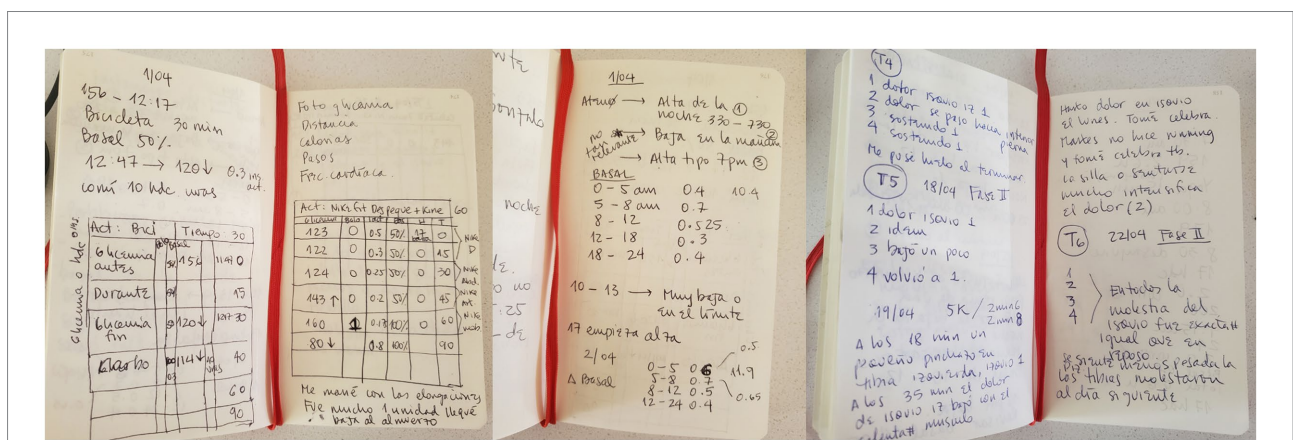 1/04
156 - 12:17
Bicicleta 30 min
Basal 50%
12:47 → 120↓ 0.3
comí 10 hdc uvas
Glucemia o hdc
Act: Bici Tiempo: 30
Glucemia antes 156 0
Durante 15
Glucemia fin 120↓ 30
114↓ 40
60
90
Foto glucemia
Distancia
calorías
Pasos
Frec. cardíaca.
Act: Nike Fit Despegue + Kine 60
123 0 0.5 50% 17
122 0 0.3 50% 0 15
124 0 0.25 50% 0 30
143↑ 0 0.2 50% 0 45
160 1 100% 0 60
80↓ 0.8 100% 90
Me mareé con las elongaciones
Fue mucho 1 unidad llegué
baja al almuerzo
noche
1/04
→ Alta de la ①
noche 330 - 730
no tan relevante → Baja en la mañana ②
→ Alta tipo 7pm ③
BASAL
0 - 5 am 0.4 10.4
5 - 8 am 0.7
8 - 12 0.525
12 - 18 0.3
18 - 24 0.4
10 - 13 → Muy baja o
en el límite
17 empieza alta
2/04
Δ Basal
0-5 0.6 0.5
5-8 0.7 11.9
8-12 0.5 0.65
12-24 0.4
T4
1 dolor isquio iz 1
2 dolor se pasó hacia interno pierna
3 sosteniendo 1
4 sosteniendo 1
Me puse hielo al terminar
T5 18/04 Fase II
1 dolor isquio 1
2 idem
3 bajó un poco
4 volvió a 1.
19/04 5K / 2min6
2min8
A los 18 min un
pequeño pinchazo en
tibia izquierda, isquio 1
A los 35 min el dolor
de isquio iz bajó con el
músculo
Mucho dolor en isquio
el lunes. Tomé celebra.
Martes no hice running
y tomé celebra tb.
La silla o sentarse
mucho intensifica
el dolor (2)
T6 22/04 Fase II
1
2
3
4
En todos la
molestia del
isquio fue exacta
igual que en
reposo
se siente menos pesada la
los tibias molestaron
al día siguiente